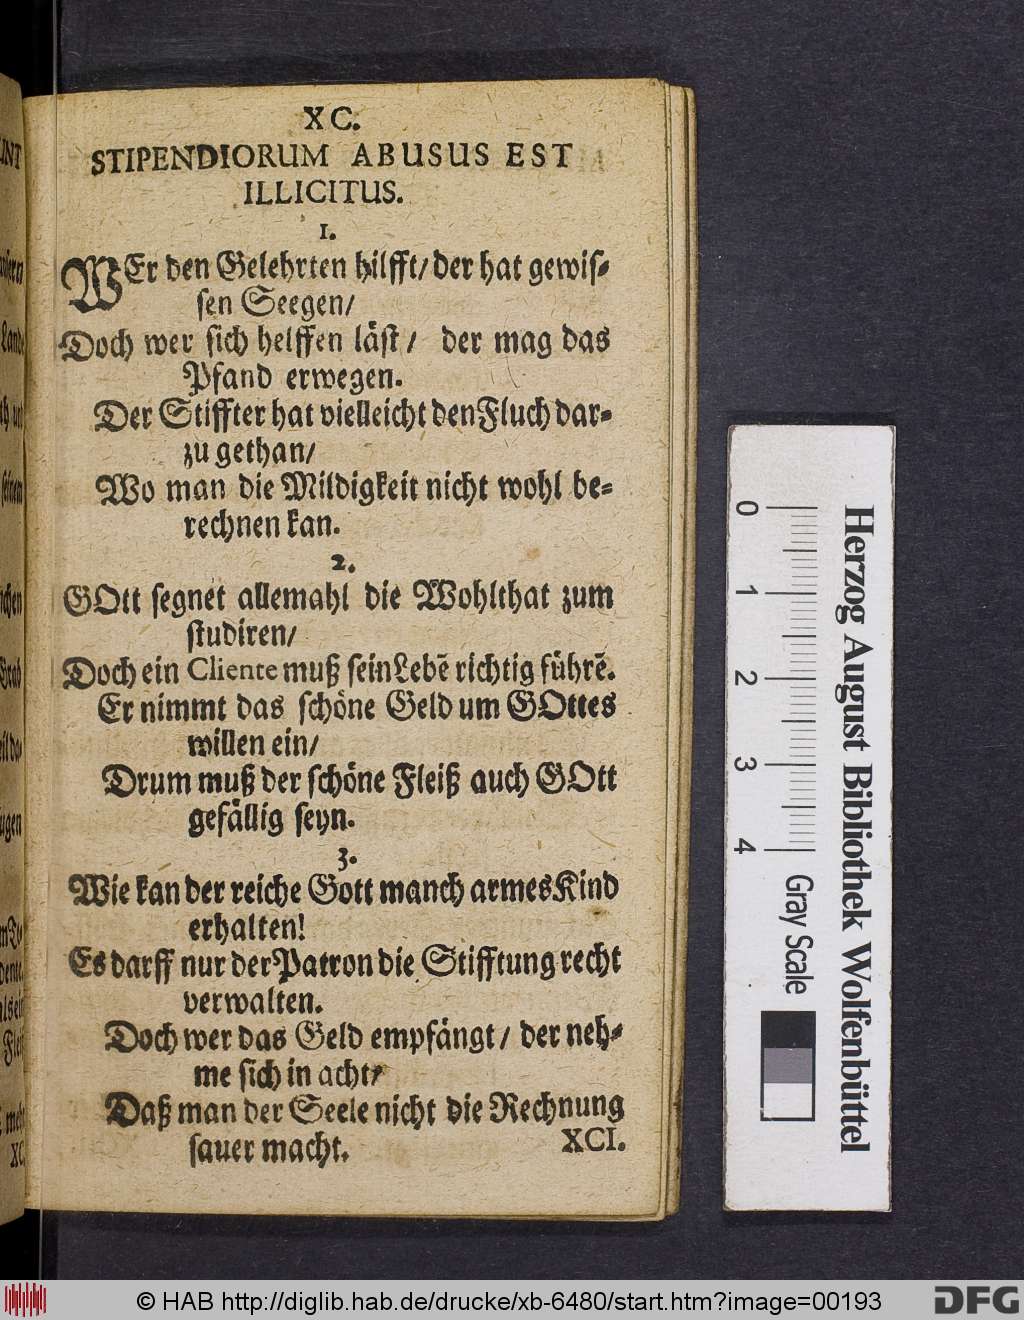 XC.
STIPENDIORUM ABUSUS EST
ILLICITUS.
1.
WEr den Gelehrten hilfft/ der hat gewis-
sen Seegen/
Doch wer sich helffen läst/ der mag das
Pfand erwegen.
Der Stiffter hat vielleicht den Fluch dar-
zu gethan/
Wo man die Mildigkeit nicht wohl be-
rechnen kan.
2.
GOtt segnet allemahl die Wohlthat zum
studiren/
Doch ein Cliente muß sein Lebē richtig führē.
Er nimmt das schöne Geld um GOttes
willen ein/
Drum muß der schöne Fleiß auch GOtt
gefällig seyn.
3.
Wie kan der reiche Gott manch armes Kind
erhalten!
Es darff nur der Patron die Stifftung recht
verwalten.
Doch wer das Geld empfängt/ der neh-
me sich in acht/
Daß man der Seele nicht die Rechnung
sauer macht.
XCI.
0 1 2 3 4
Gray Scale
Herzog August Bibliothek Wolfenbüttel
© HAB http://diglib.hab.de/drucke/xb-6480/start.htm?image=00193
DFG